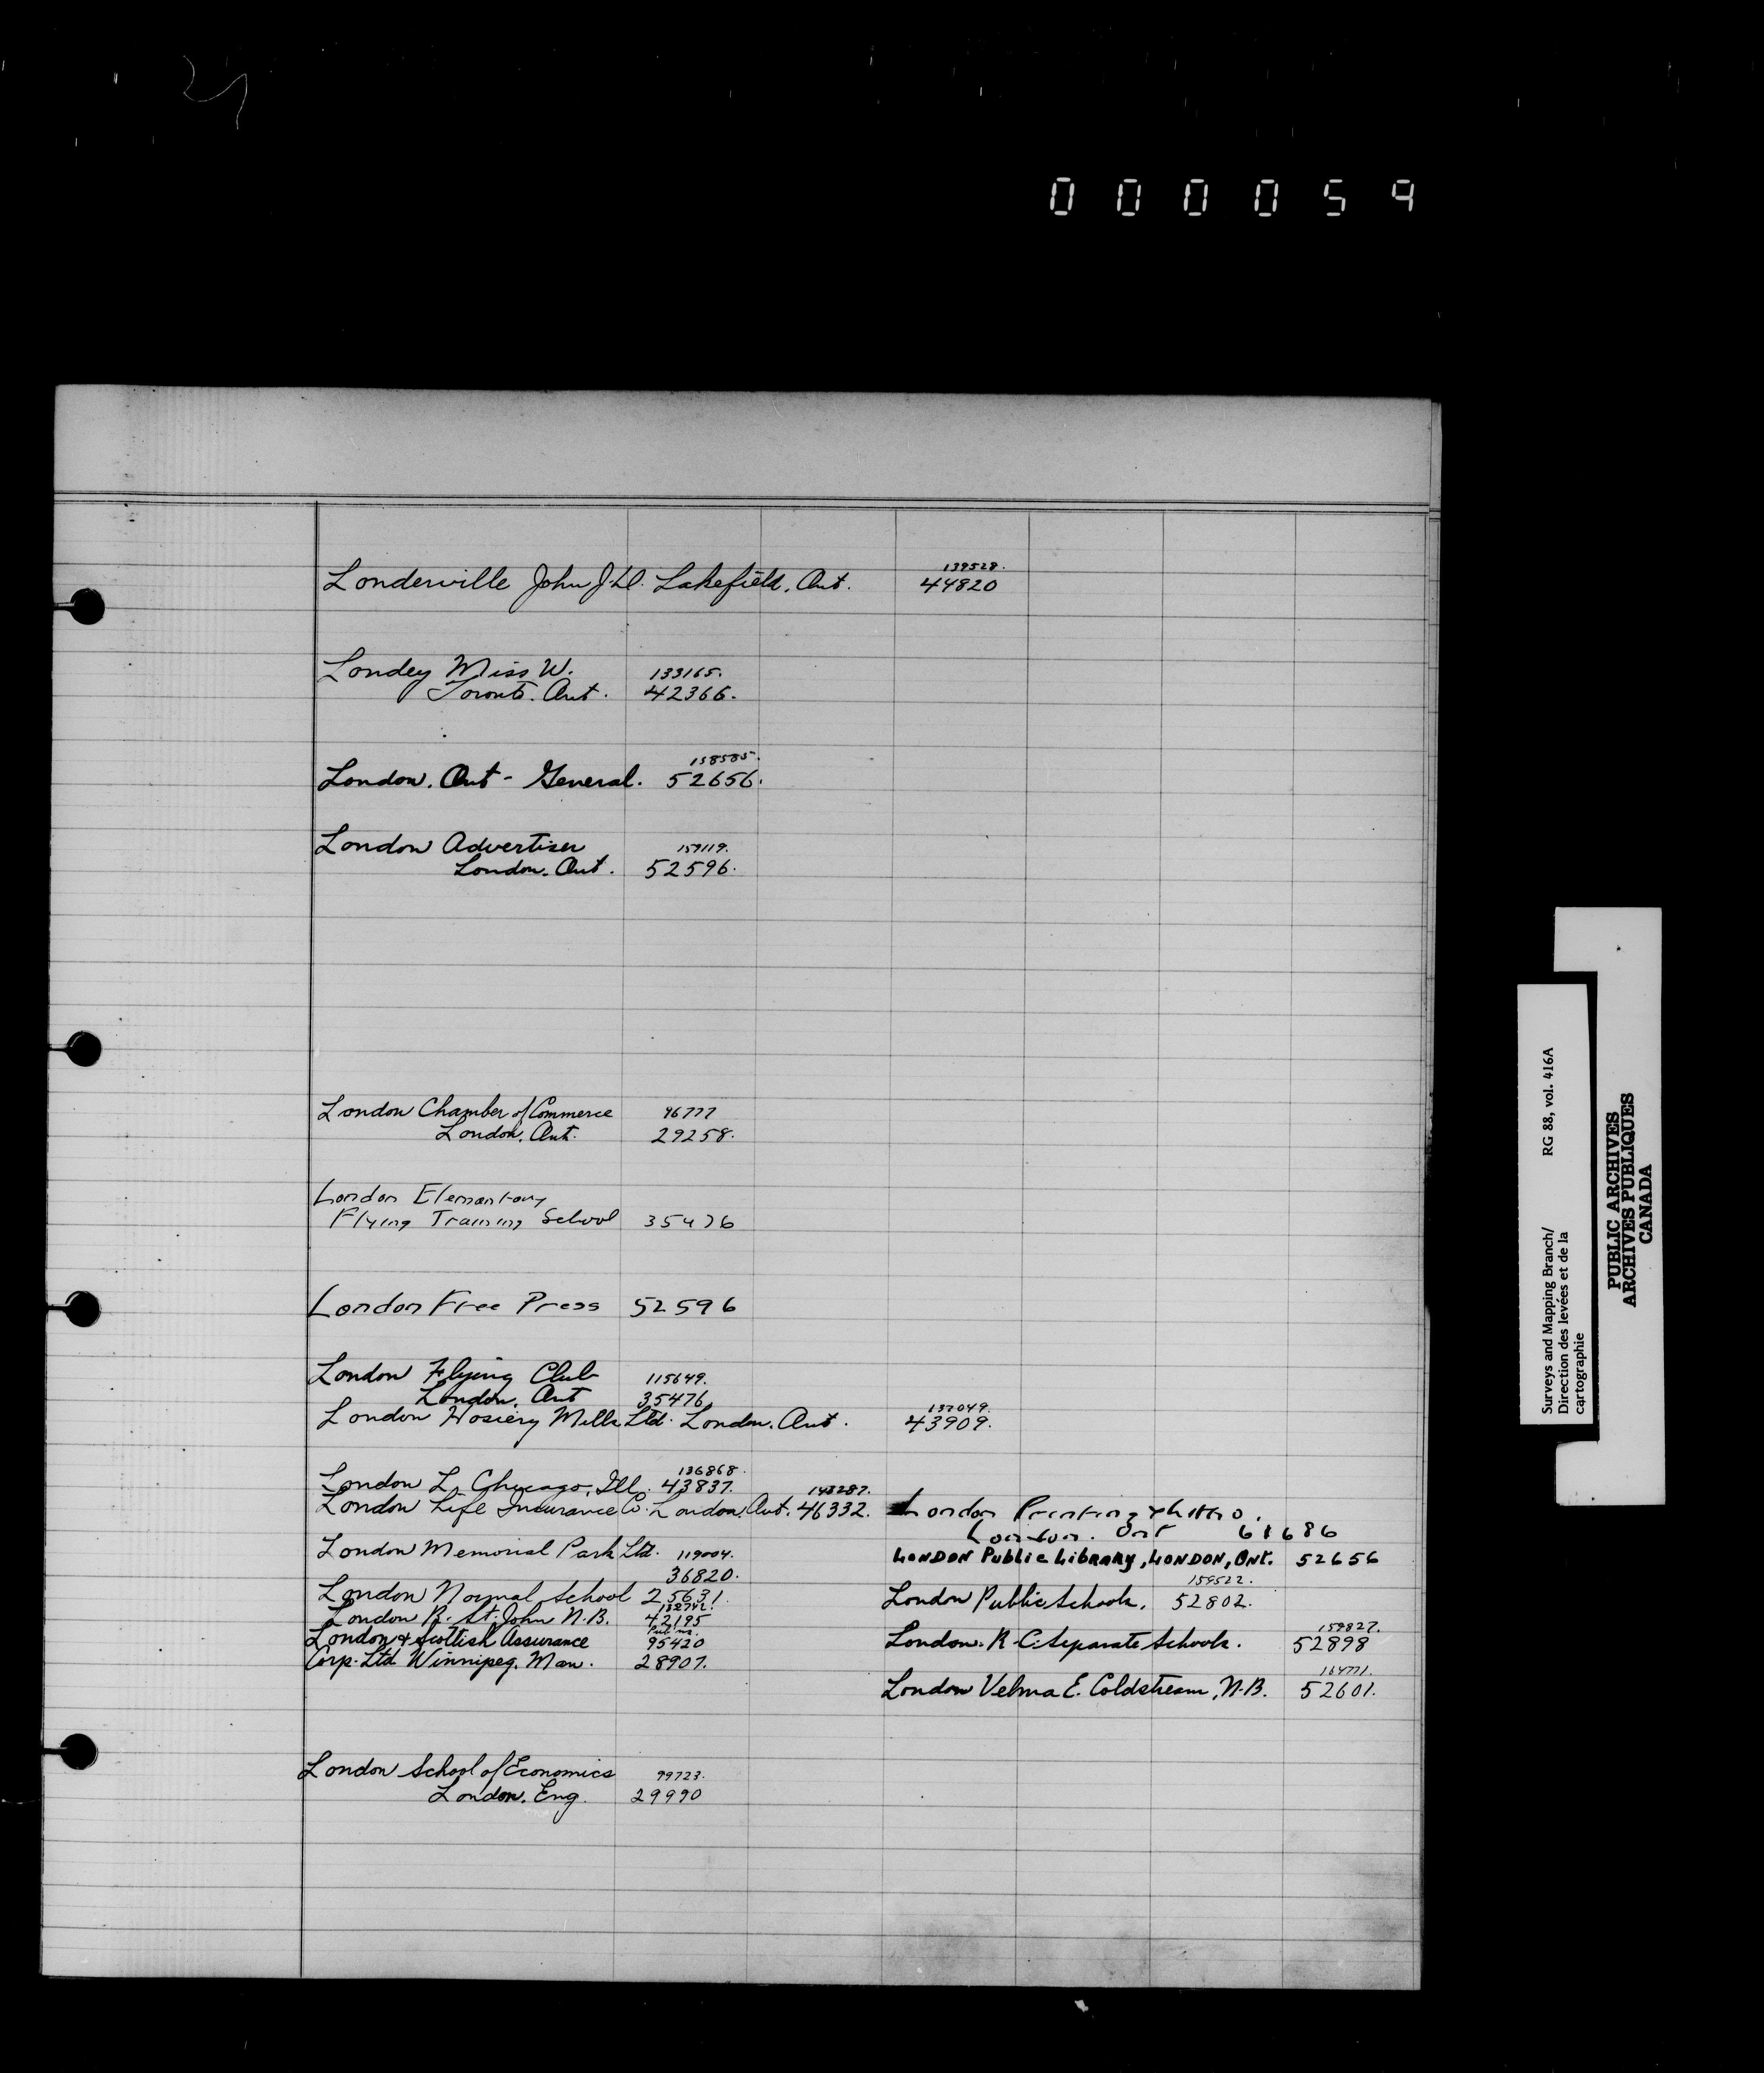 000059
139528.
Londerville John J. Lakefield. Ont. 44820
Londey Miss W. 133165.
Toronto. Ont. 42366.
158585.
London. Ont - General. 52656.
London Advertiser 159119.
London. Ont. 52596.
London Chamber of Commerce 96777
London. Ont. 29258.
London Elementary
Flying Training School 35476
London Free Press 52596
London Flying Club 115649.
London. Ont 35476.
137049.
London Hosiery Mills Ltd. London. Ont. 43909.
136868.
London L. Chicago, Ill. 43837.
143287.
London Life Insurance Co. London. Ont. 46332.
London Memorial Park Ltd. 119004.
36820.
London Normal School 25631
132742.
London R. St. John N.B. 42195
London & Scottish Assurance 95420
Corp. Ltd Winnipeg. Man. 28907.
London School of Economics 99723.
London. Eng. 29990
London Printing & Litho.
London. Ont 61686
LONDON Public Library, LONDON, Ont. 52656
159522.
London Public Schools. 52802.
159827.
London. R.C. Separate Schools. 52898
164771.
London Velma E. Coldstream, N.B. 52601.
Surveys and Mapping Branch/ RG 88, vol. 416A
Direction des levées et de la
cartographie
PUBLIC ARCHIVES
ARCHIVES PUBLIQUES
CANADA